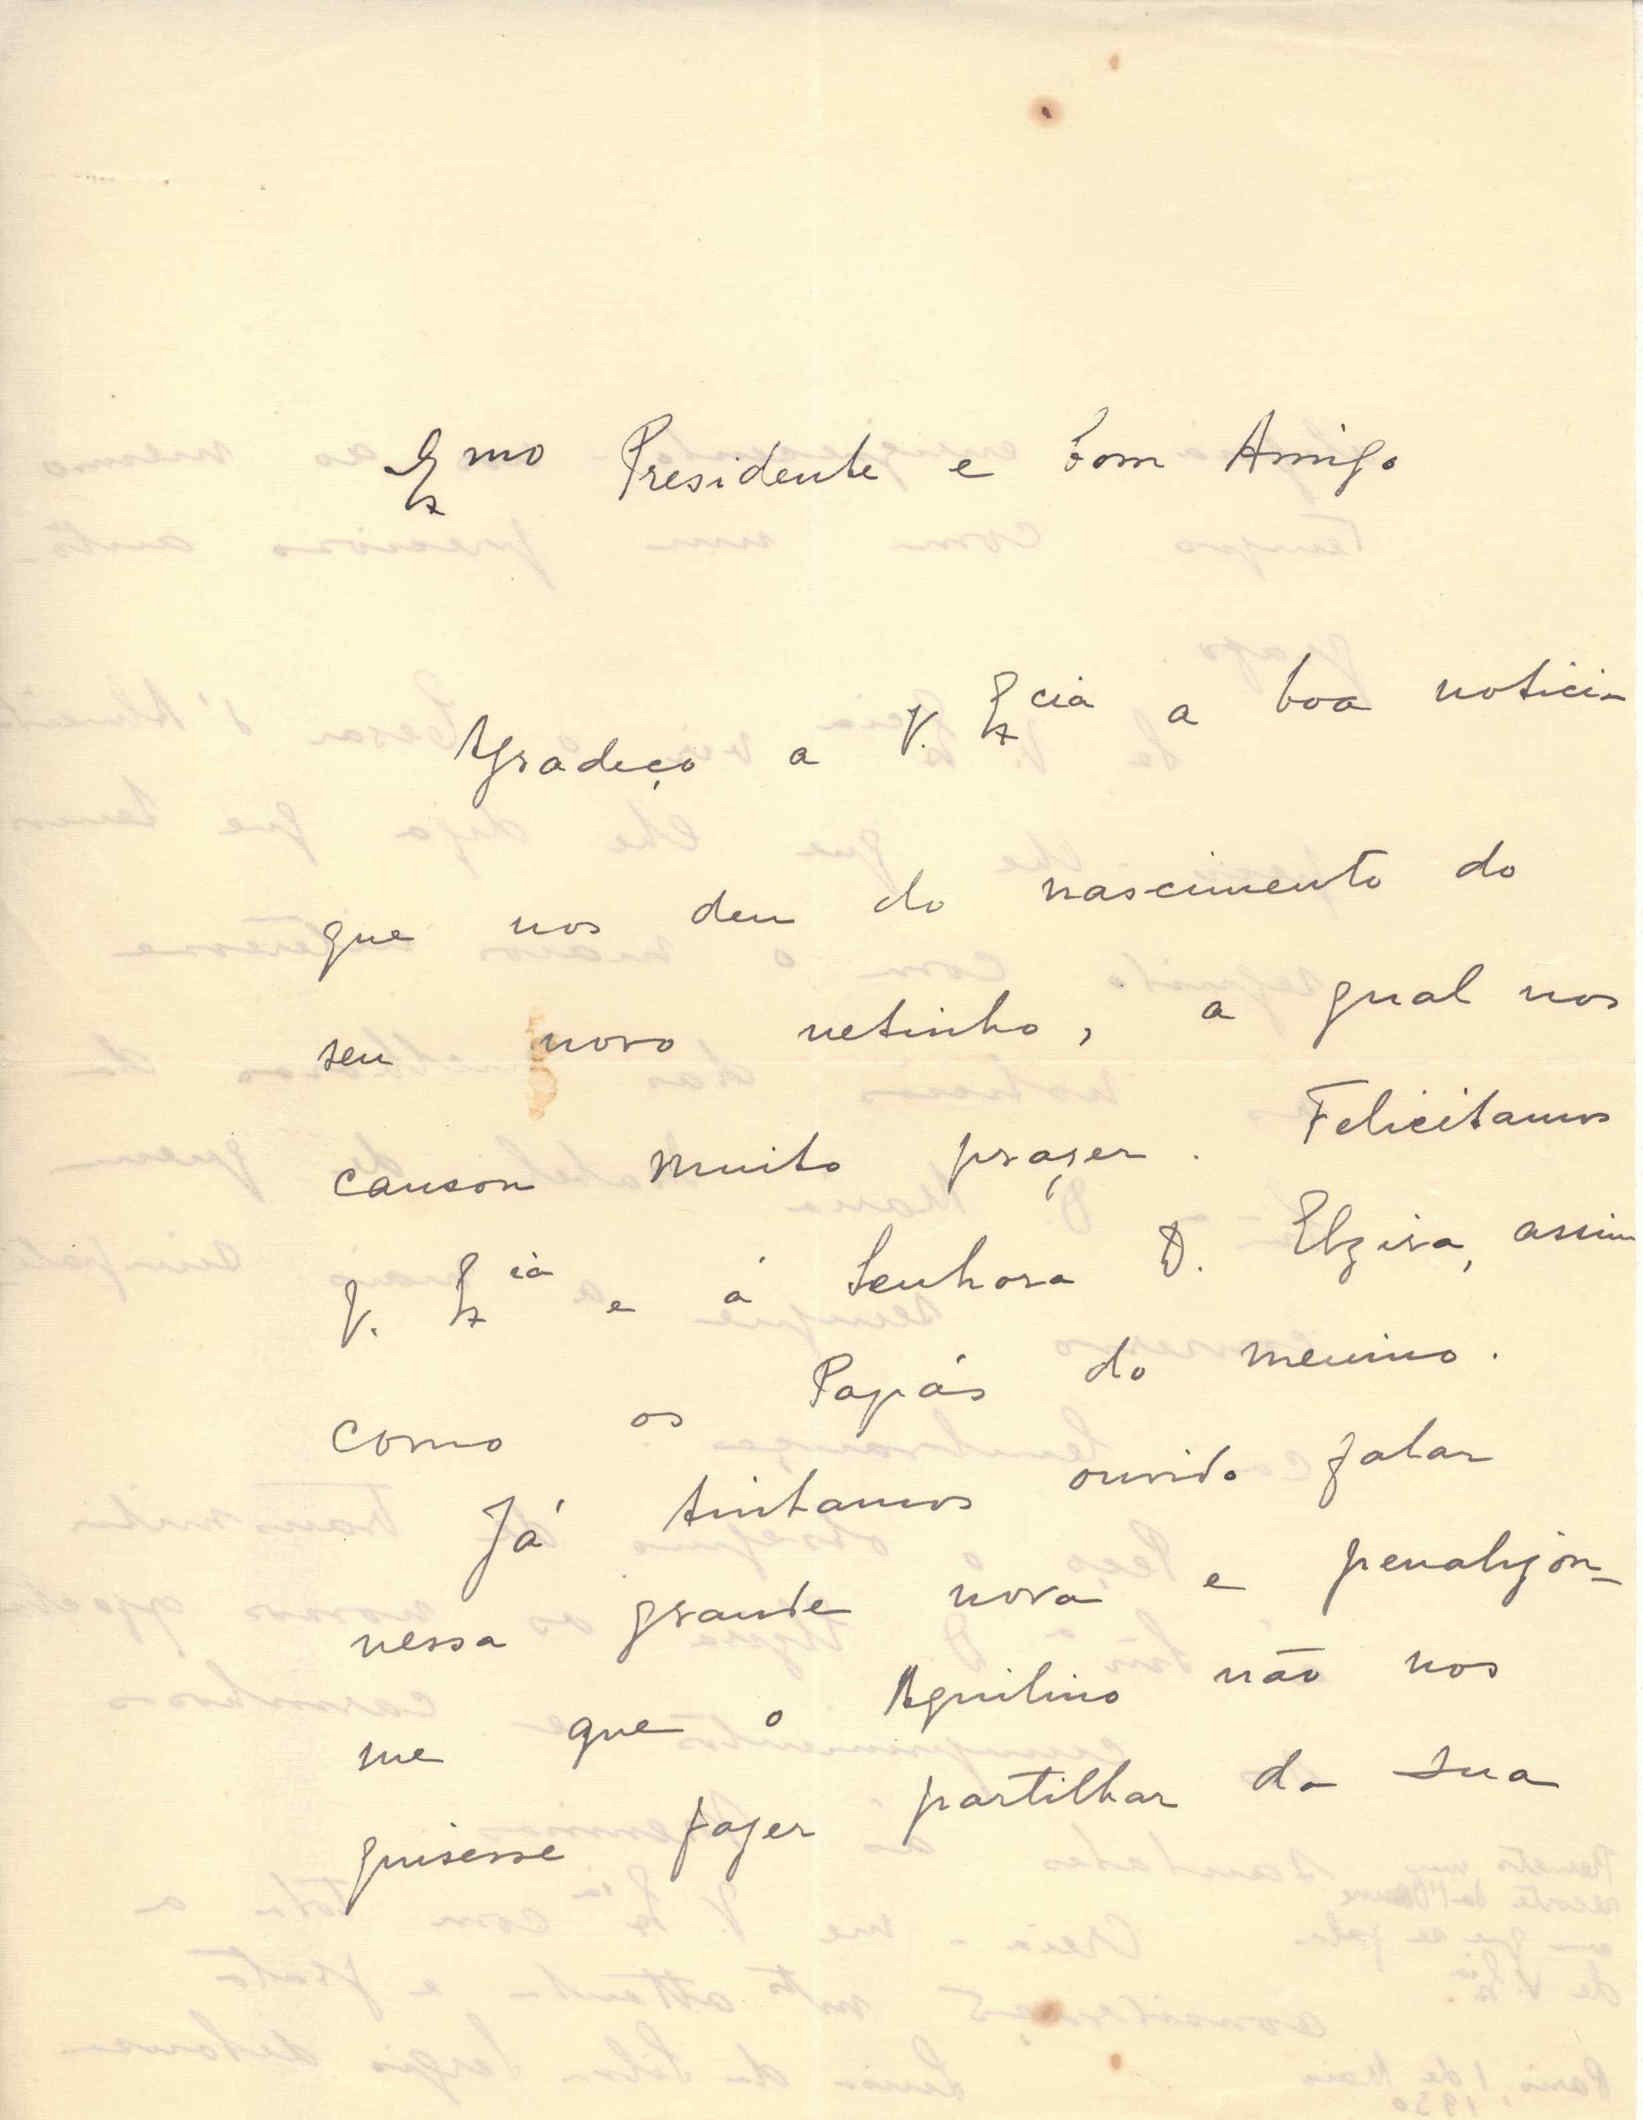 Exmo Presidente e bom Amigo
Agradeço a V. Excia a boa noticia
que nos deu do nascimento do
seu novo netinho, a qual nos
causou muito prazer. Felicitamos
V. Exia e á Senhora D. Elzira, assim
como os Papás do menino.
Já tinhamos ouvido falar
nessa grande nova e penalizou-
me que o Aquilino não nos
quisesse fazer partilhar da sua